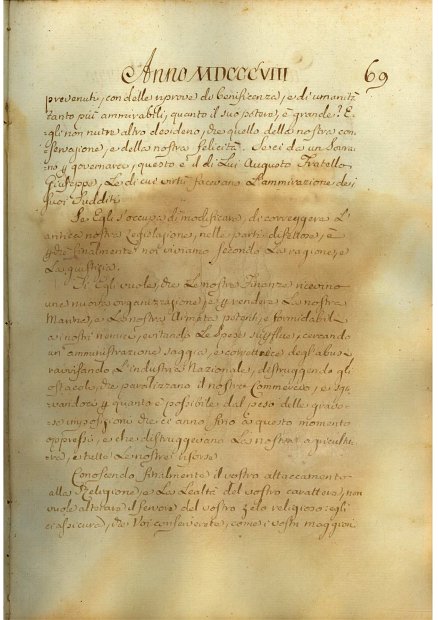 Anno MDCCCVIII 69
prevenuti, con delle riprove di Beneficenza, e di umanità
tanto più ammirabili, quanto il suo potere, è grande? E-
gli non nutre altro desiderio, che quello della nostra con-
servazione, e della nostra felicità. Se ci da un Sovra-
no p governarci, questo è il di Lui Augusto Fratello
Giuseppe, Le di cui virtù facevano L'ammirazione dei
suoi Sudditi.
Se Egli s'occupa di modificare, di correggere L'
antica nostra Legislazione, nelle parti difettose, è
p che finalmente noi viviamo secondo La ragione, e
La giustizia.
Se Egli vuole, che Le nostre Finanze ricevino
una nuova organizzazione, è p rendere La nostra
Marina, e La nostra Armata potenti, e formidabili
ai nostri nemici, evitando Le Spese superflue, cercando
un'amministrazione saggia, e correttrice degli abusi
ravvisando L'industria Nazionale, distruggendo gli
ostacoli, che paralizzano il nostro Commercio, e sgra-
vandoci p quanto è possibile dal peso delle gravo-
se imposizioni che ci anno fino a questo momento
oppressi, e che distruggevano La nostra agricultu-
ra, e tutte Le nostre risorse.
Conoscendo finalmente il vostro attaccamento
alla Religione, e La Lealtà del vostro carattere, non
vuole alterare il fervore del vostro zelo religioso; egli
ci assicura, che Voi conserverete, come i vostri maggiori